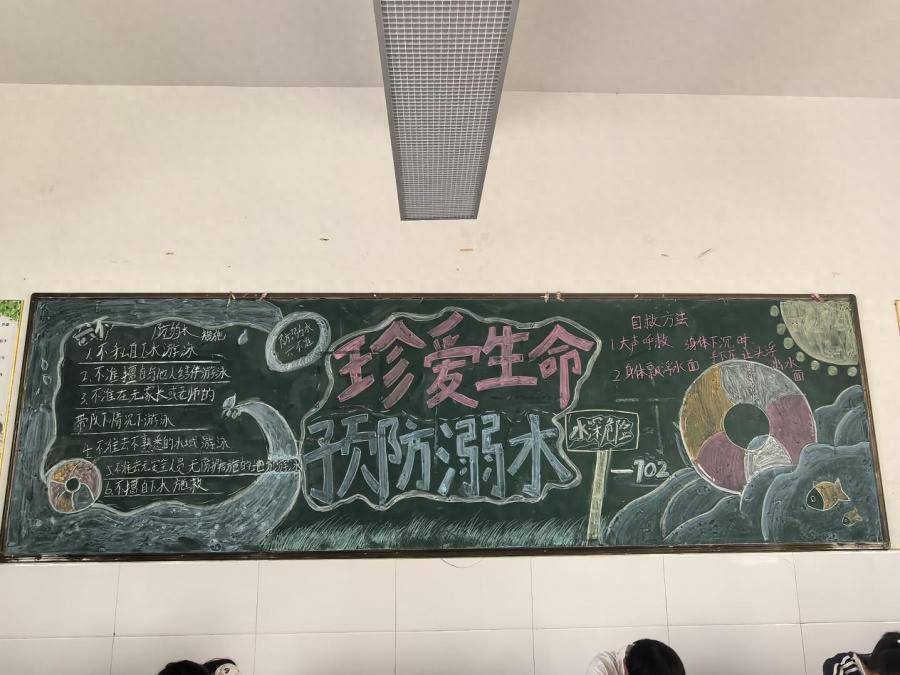 六不
防溺水
措施
1.不私自下水游泳
2.不准擅自与他人结伴游泳
3.不准在无家长或老师的
带队下情况下游泳
4.不准去不熟悉的水域游泳
5.不准去无安全人员无防护措施的游泳
6.不擅自下水施救
防溺水
六不准
珍爱生命
预防溺水
水深危险
702
自救方法
1大声呼救
2.身体飘浮水面
3身体下沉时
让头浮
出水
面